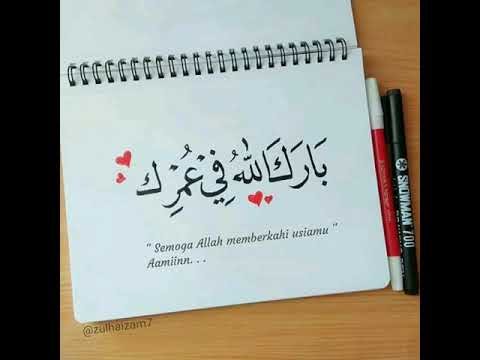 بَارَكَ اللّٰهُ فِيْ عُمْرِك
" Semoga Allah memberkahi usiamu "
Aamiinn. . .
SNOWMAN 700
@zulhaizam7